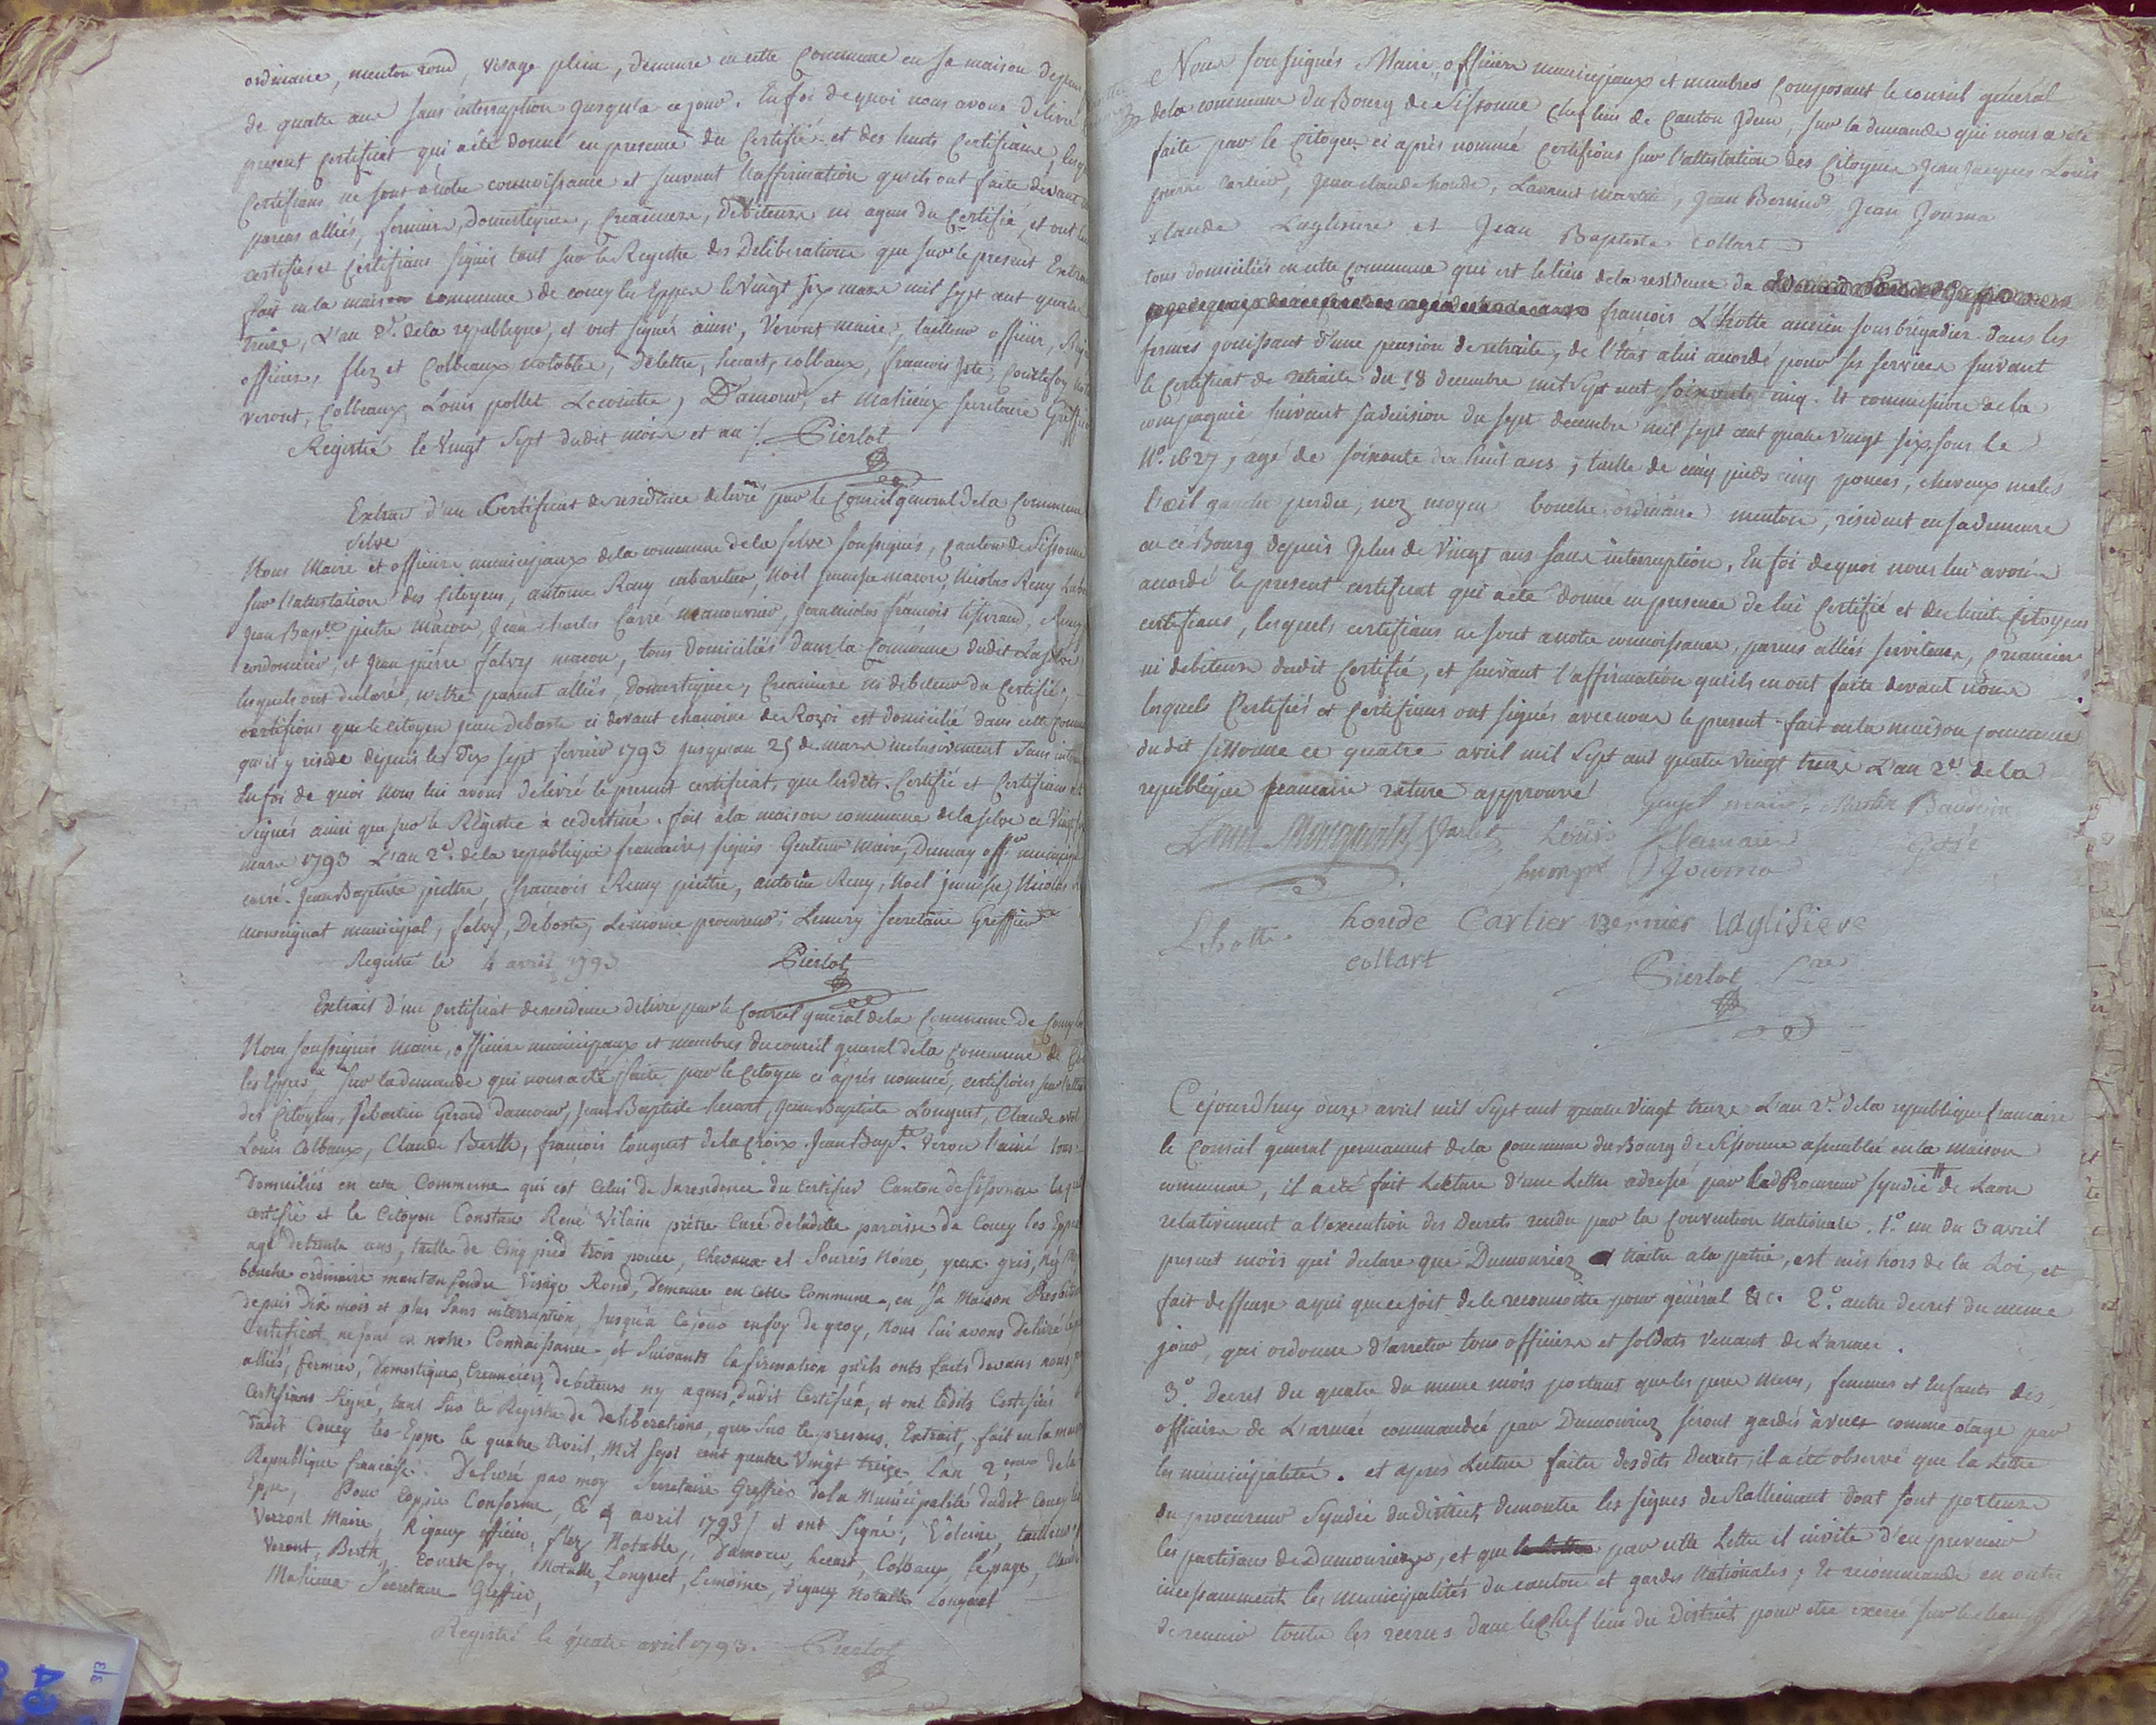 ordinaire, menton rond, visage plein, demeure en cette Commune en sa maison depuis
de quatre ans sans interruption jusqu'a ce jour. En foi de quoi nous avons delivré
present Certificat qui a été donné en presence du Certifié et des huits Certifians,
Certifians ne sont a notre connoissance et suivant l'affirmation qu'ils ont faite devant
parens alliés, fermiers, domestiques, Creanciers, debiteurs ni agens du Certifié, et ont
certifiés et Certifians signés tant sur le Registre des Deliberations que sur le present Extrait
fait en la maison commune de coucy les Eppes le vingt six mars mil sept cent quatre
treize, L'an 2.e de la republique, et ont signés ainsi, Veront maire, tailleur officier,
officiers, flez et Colbeaux notables, Delettre, hecart, colbaux, francois, Courtefoy
veront, Colbeaux, Louis pollet Lecointre, D'amour, et Mahieux secretaire Greffier
Registré le vingt sept dudit mois et an /. Pierlot
Extrait d'un Certificat de residence delivré par le Conseil general de la Commune
Selve
Nous Maire et officiers municipaux de la commune de la selve soussignés, Canton de Sissonne
sur l'attestation des Citoyens, antoine Remy cabaretier, Noël jennesse macon, Nicolas Remy
Jean Bap.te pietre Macon, Jean charles Carré manouvrier, jean nicolas françois tisserand, Remy
cordonnier, et Jean pierre falvy macon, tous domiciliés dans la Commune dudit Laselve
lesquels ont declaré, n'etre parent alliés, domestiques, Creanciers ni debiteur du Certifié,
certifions que le citoyen jean deboste ci devant chanoine de Rozoi est domicilié dans cette
qu'il y reside depuis le Dix sept fevrier 1793 jusqu'au 25 de mars inclusivement sans
En foi de quoi Nous lui avons delivré le present certificat, que lesdits Certifié et Certifians
signés ainsi que sur le Registre a ce destiné. fait a la maison commune de la selve ce Vingt
mars 1793 L'an 2.e de la republique francaise, signés Genteur Maire, Dumay off.er municipal
carré. Jean Baptiste piettre, francois Remy piettre, antoine Remy, Noel jennesse, Nicolas
monseignat municipal, falvy, Deboste, Lemoine procureur, Lemery secretaire Greffier
Registré le 4 avril 1793 Pierlot
Extrait d'un Certificat de residence delivré par le Conseil general de la Commune de Coucy
Nous soussignés maire, officiers municipaux et membres du conseil general de la Commune de
les Eppes sur la demande qui nous a été faite par le Citoyen ci après nommé, certifions sur
des Citoyens, Sebastien Gerard damour, Jean Baptiste hecart, Jean Baptiste Longuet, Claude
Louis Colbaux, Claude Berth, françois Longuet de la Croix Jean Bap.te Veron l'ainé tous
Domiciliés en cete Commune qui est celui de la residence du certifié Canton de Sissonne
certifié et le Citoyen Constant René Vilain prêtre Curé de ladite paroisse de Coucy les Eppes
agé de trente ans, taille de Cinq pied trois pouce, chevaux et Sourcis Noire, yeux gris,
bouche ordinaire menton fendu Visage Rond, Demeure en Cette Commune, en Sa Maison
depuis Dix mois et plus Sans interruption, Jusqu'à Cejour en foy de quoy, Nous lui avons délivré
Certificat ne sont a notre Connaissance, et Suivants lafirmation qu'ils onts faits devans nous
alliés, fermiers, Domestiques, Creanciers, debiteurs ny agens dudit Certifiés, et ont lédits Certifiés
Certifians Signé, tant Sur le Registre de deliberations, que Sur le presens, Extrait, fait en la
dudit Coucy les Eppe le quatre Avril, Mil Sept cent quatre Vingt treize, Lan 2.eme de la
Republique francaise. Délivré par moy Secretaire Greffier dela Municipalité dudit Coucy les
Eppe, Pour Coppie Conforme, Ce 4 avril 1793/ et ont Signé,
Verront Maire, Rigaux officier, flez Notable, Damour, hecart, Colbaux, Lepage, Claude
Veront, Berth, Courtefoy, Notable, Longuet, Lemoine, Notable Longuet
Mahieux Secretaire Greffier,
Registré le quatre avril 1793. Pierlot
Nous soussignés Maire, officiers municipaux et membres Composant le conseil général
de la commune du Bourg de Sissonne Chef lieu de Canton Idem, sur la demande qui nous a été
faite par le Citoyen ci après nommé Certifions sur l'attestation des Citoyens Jean Jacques Louis
pierre Carlier, Jean claude houde, Laurent martin, Jean Bernier, Jean Journa
claude Laglisiere et Jean Baptiste Collart
tous domiciliés en cette commune qui est le lieu de la residence de
françois L'hotte ancien sous brigadier dans les
fermes jouissant d'une pension de retraite, de l'Etat a lui accordé pour ses services suivant
le Certificat de retraite du 18 decembre mil sept cent soixante cinq. Et commissions de la
compagnie suivant sa decision du sept decembre mil sept cent quatre vingt six, sous le
N.o 1627, agé de soixante dix huit ans, taille de cinq pieds cinq pouces, cheveux melés
l'œil gauche perdue, nez moyen bouche ordinaire menton, résident en sa demeure
en ce Bourg depuis plus de vingt ans sans interruption. En foi de quoi nous lui avons
accordé le present certificat qui a été donné en presence de lui Certifié et des huit Citoyens
certifians, lesquels certifians ne sont a notre connoissance, parens alliés serviteurs, Creanciers
ni debiteurs dudit Certifié, et suivant l'affirmation qu'ils en ont faite devant nous
lesquels Certifiés et Certifians ont signés avec nous le present fait en la maison commune
dudit sissonne ce quatre avril mil sept cent quatre vingt treize L'an 2.e de la
republique francaise rature approuvé
Louis Varlet Louis Hamaire
Journa
Lhotte houde Carlier Bernier laglisiere
collart
Pierlot S.re
Cejourdhuy onze avril mil sept cent quatre vingt treize L'an 2.e de la republique francaise
le Conseil general permanent de la Commune du Bourg de Sissonne assemblée en la Maison
commune, il a été fait Lecture d'une Lettre adressé par le Procureur syndic de Laon
relativement a l'execution des Decrets rendu par la Convention Nationale. 1.o un du 3 avril
present mois qui declare que Dumouriez traitre a la patrie, est mis hors de la Loi, et
fait deffense a qui que ce soit de le reconnoitre pour général &c. 2.o autre decret du meme
jour, qui ordonne d'arreter tous officiers et soldats Venant de L'armée.
3.o Decret du quatre du meme mois portant que les pere Meres, femmes et Enfants des
officiers de L'armée commandée par Dumouriez seront gardés à vues comme otage par
les municipalités. et après Lecture faite desdits Decrets, il a été observé que la Lettre
du procureur Syndic du district demontre les signes de Ralliement dont sont porteurs
les partisans de Dumouriez, et que par cette Lettre il invite d'en prevenir
incessamment les Municipalités du canton et gardes Nationales; Et recommande en outre
de reunir toutes les recrues dans le chef lieu du District pour etre exercé sur le champ